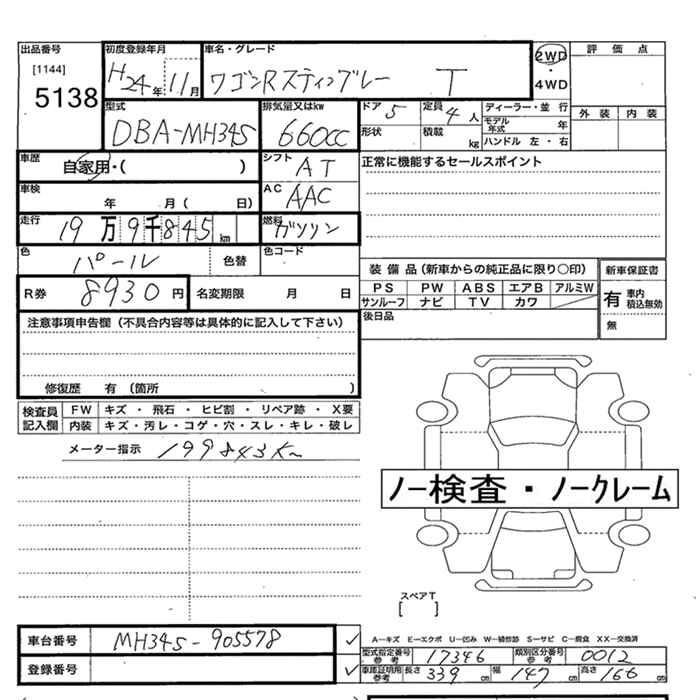 出品番号 初度登録年月 車名・グレード 2WD 評価点
[1144] H24年 11月 ワゴンRスティングレー T ・
5138 4WD
型式 排気量又はkw ドア 5 定員 4人 ディーラー・並 行 外装 内装
DBA-MH34S 660cc 形状 積載 kg モデル年式 年
ハンドル 左・右
車歴 自家用・( ) シフト AT 正常に機能するセールスポイント
車検 年 月( 日) AC AAC
走行 19万9千845km 燃料 ガソリン
色 パール 色替 色コード
装備品(新車からの純正品に限り○印) 新車保証書
R券 8930円 名変期限 月 日 PS PW ABS エアB アルミW 有 車内積込無効
サンルーフ ナビ TV カワ
注意事項申告欄(不具合内容等は具体的に記入して下さい) 後日品 無
修復歴 有(箇所 )
検査員 FW キズ・飛石・ヒビ割・リペア跡・X要
記入欄 内装 キズ・汚レ・コゲ・穴・スレ・キレ・破レ
メーター指示 199843K
ノー検査・ノークレーム
スペアT
[ ]
車台番号 MH34S-905578 A-キズ E-エクボ U-凹み W-補修跡 S-サビ C-腐食 XX-交換済
型式指定番号参考 17346 類別区分番号参考 0012
登録番号 車庫証明用参考 長さ 339cm 幅 147cm 高さ 166cm